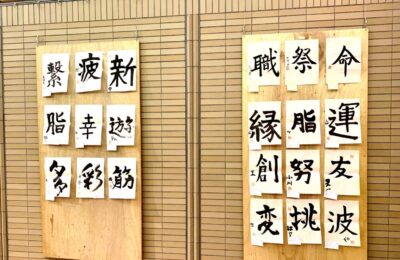 繋 疲 新
脂 幸 遊
多 彩 筋
職 祭 命
縁 脂 運
創 努 友
変 挑 波